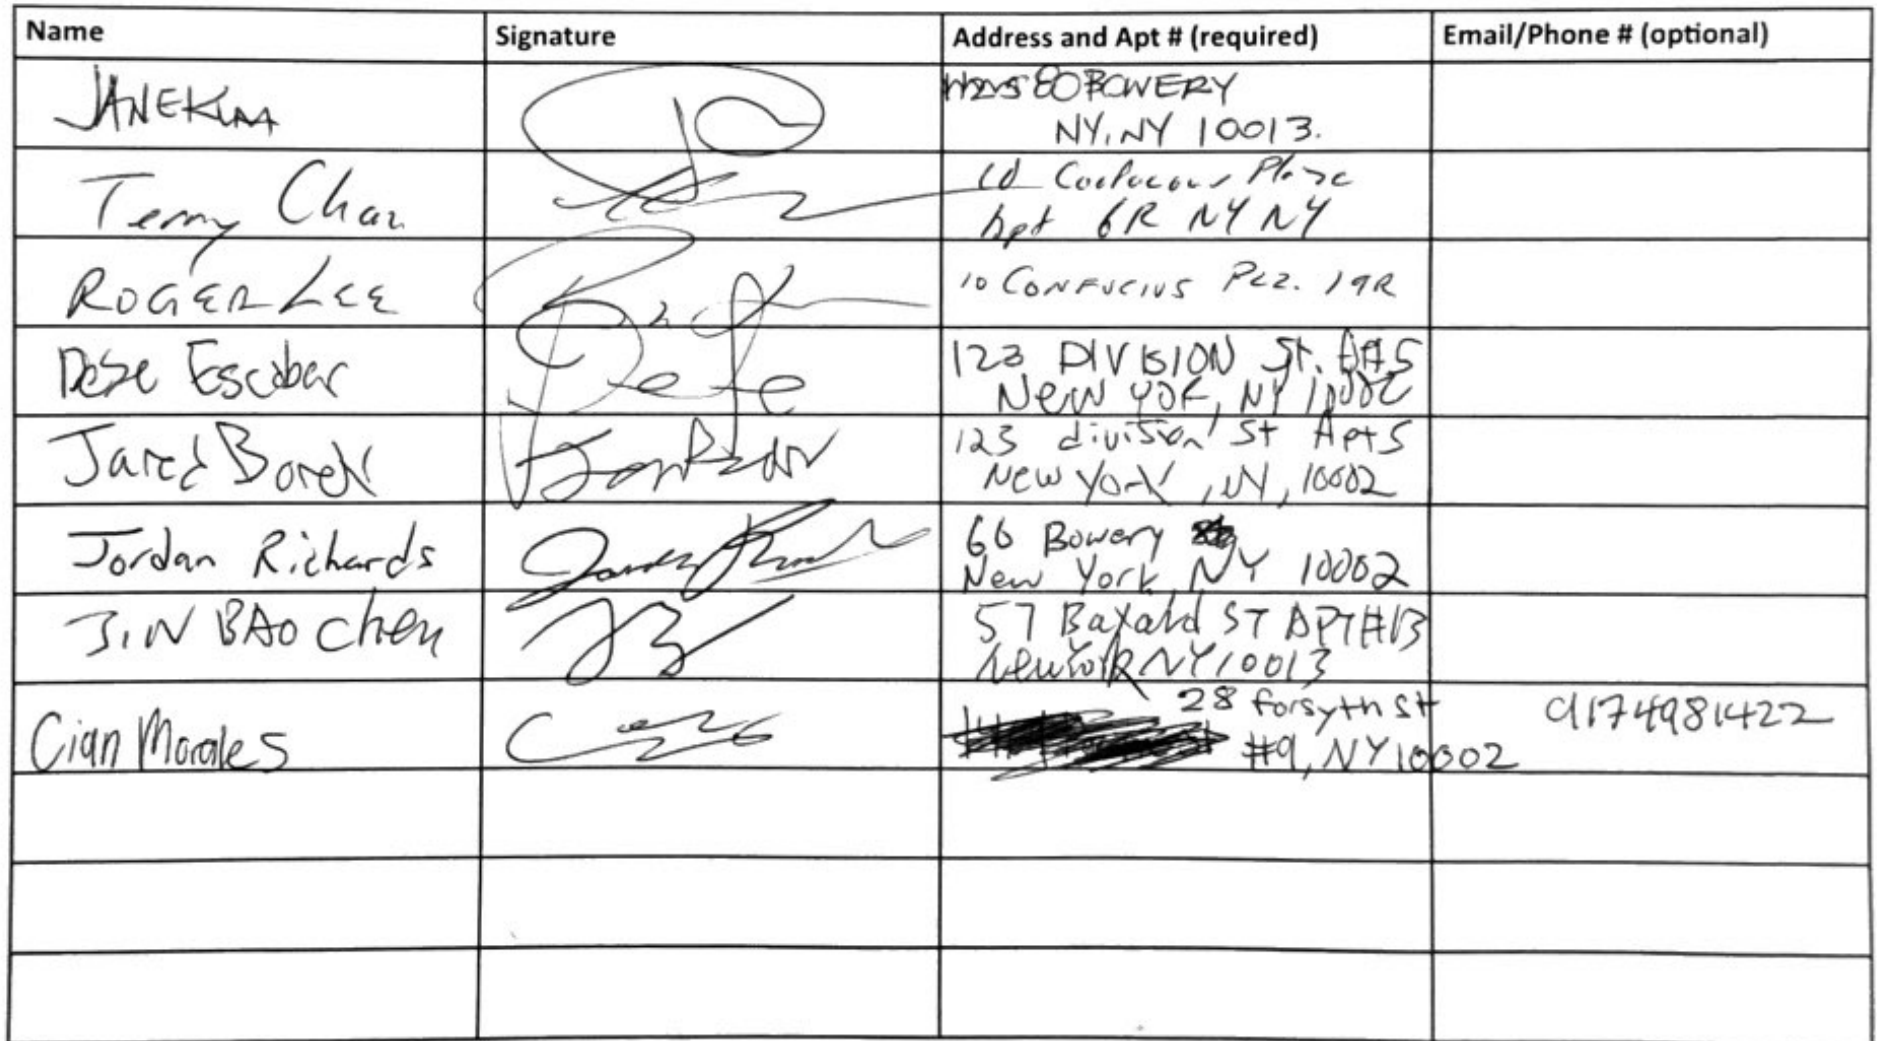 Name Signature Address and Apt # (required) Email/Phone # (optional)
JANE KIM 80 BOWERY
NY, NY 10013.
Terry Chan 10 Plaza
Apt 6R NY NY
ROGER LEE 10 CONFUCIUS PLZ. 19R
Escobar 123 DIVISION St. #5
New YOK, NY 10002
Jared Boren 123 division St Apt 5
New York, NY, 10002
Jordan Richards 66 Bowery
New York, NY 10002
JIN BAO chen 57 Bayard ST APT#13
New York NY 10013
Cian Morales 28 Forsyth St 9174981422
#9, NY 10002